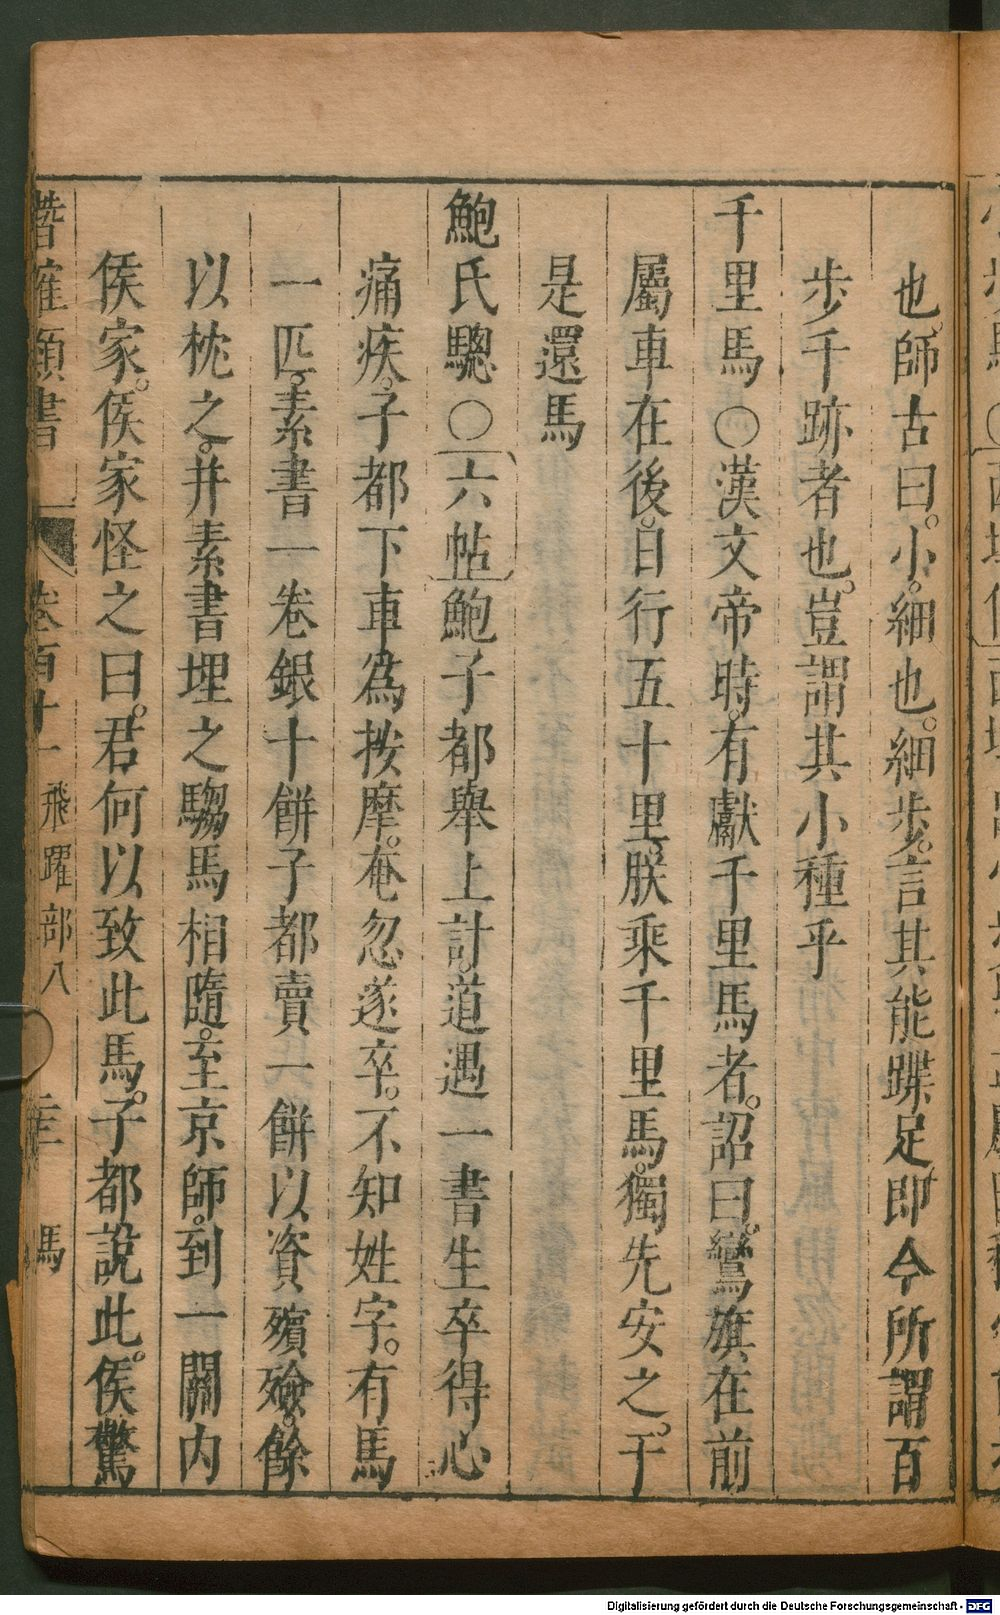 也。師古曰。小。細也。細步。言其能蹀足。即今所謂百
步千跡者也。豈謂其小種乎
千里馬○漢文帝時。有獻千里馬者。詔曰。鸞旗在前
屬車在後。日行五十里。朕乘千里馬。獨先安之。于
是還馬
鮑氏驄○六帖鮑子都舉上計。道遇一書生卒得心
痛疾。子都下車為按摩。奄忽遂卒。不知姓字。有馬
一匹。素書一卷銀十餅子都賣一餅以資殯殮。餘
以枕之。并素書埋之騶馬相隨。至京師。到一關內
侯家。侯家怪之曰。君何以致此馬。子都說此。侯驚
類書 卷百十一 飛躍部八 馬
Digitalisierung gefördert durch die Deutsche Forschungsgemeinschaft - DFG